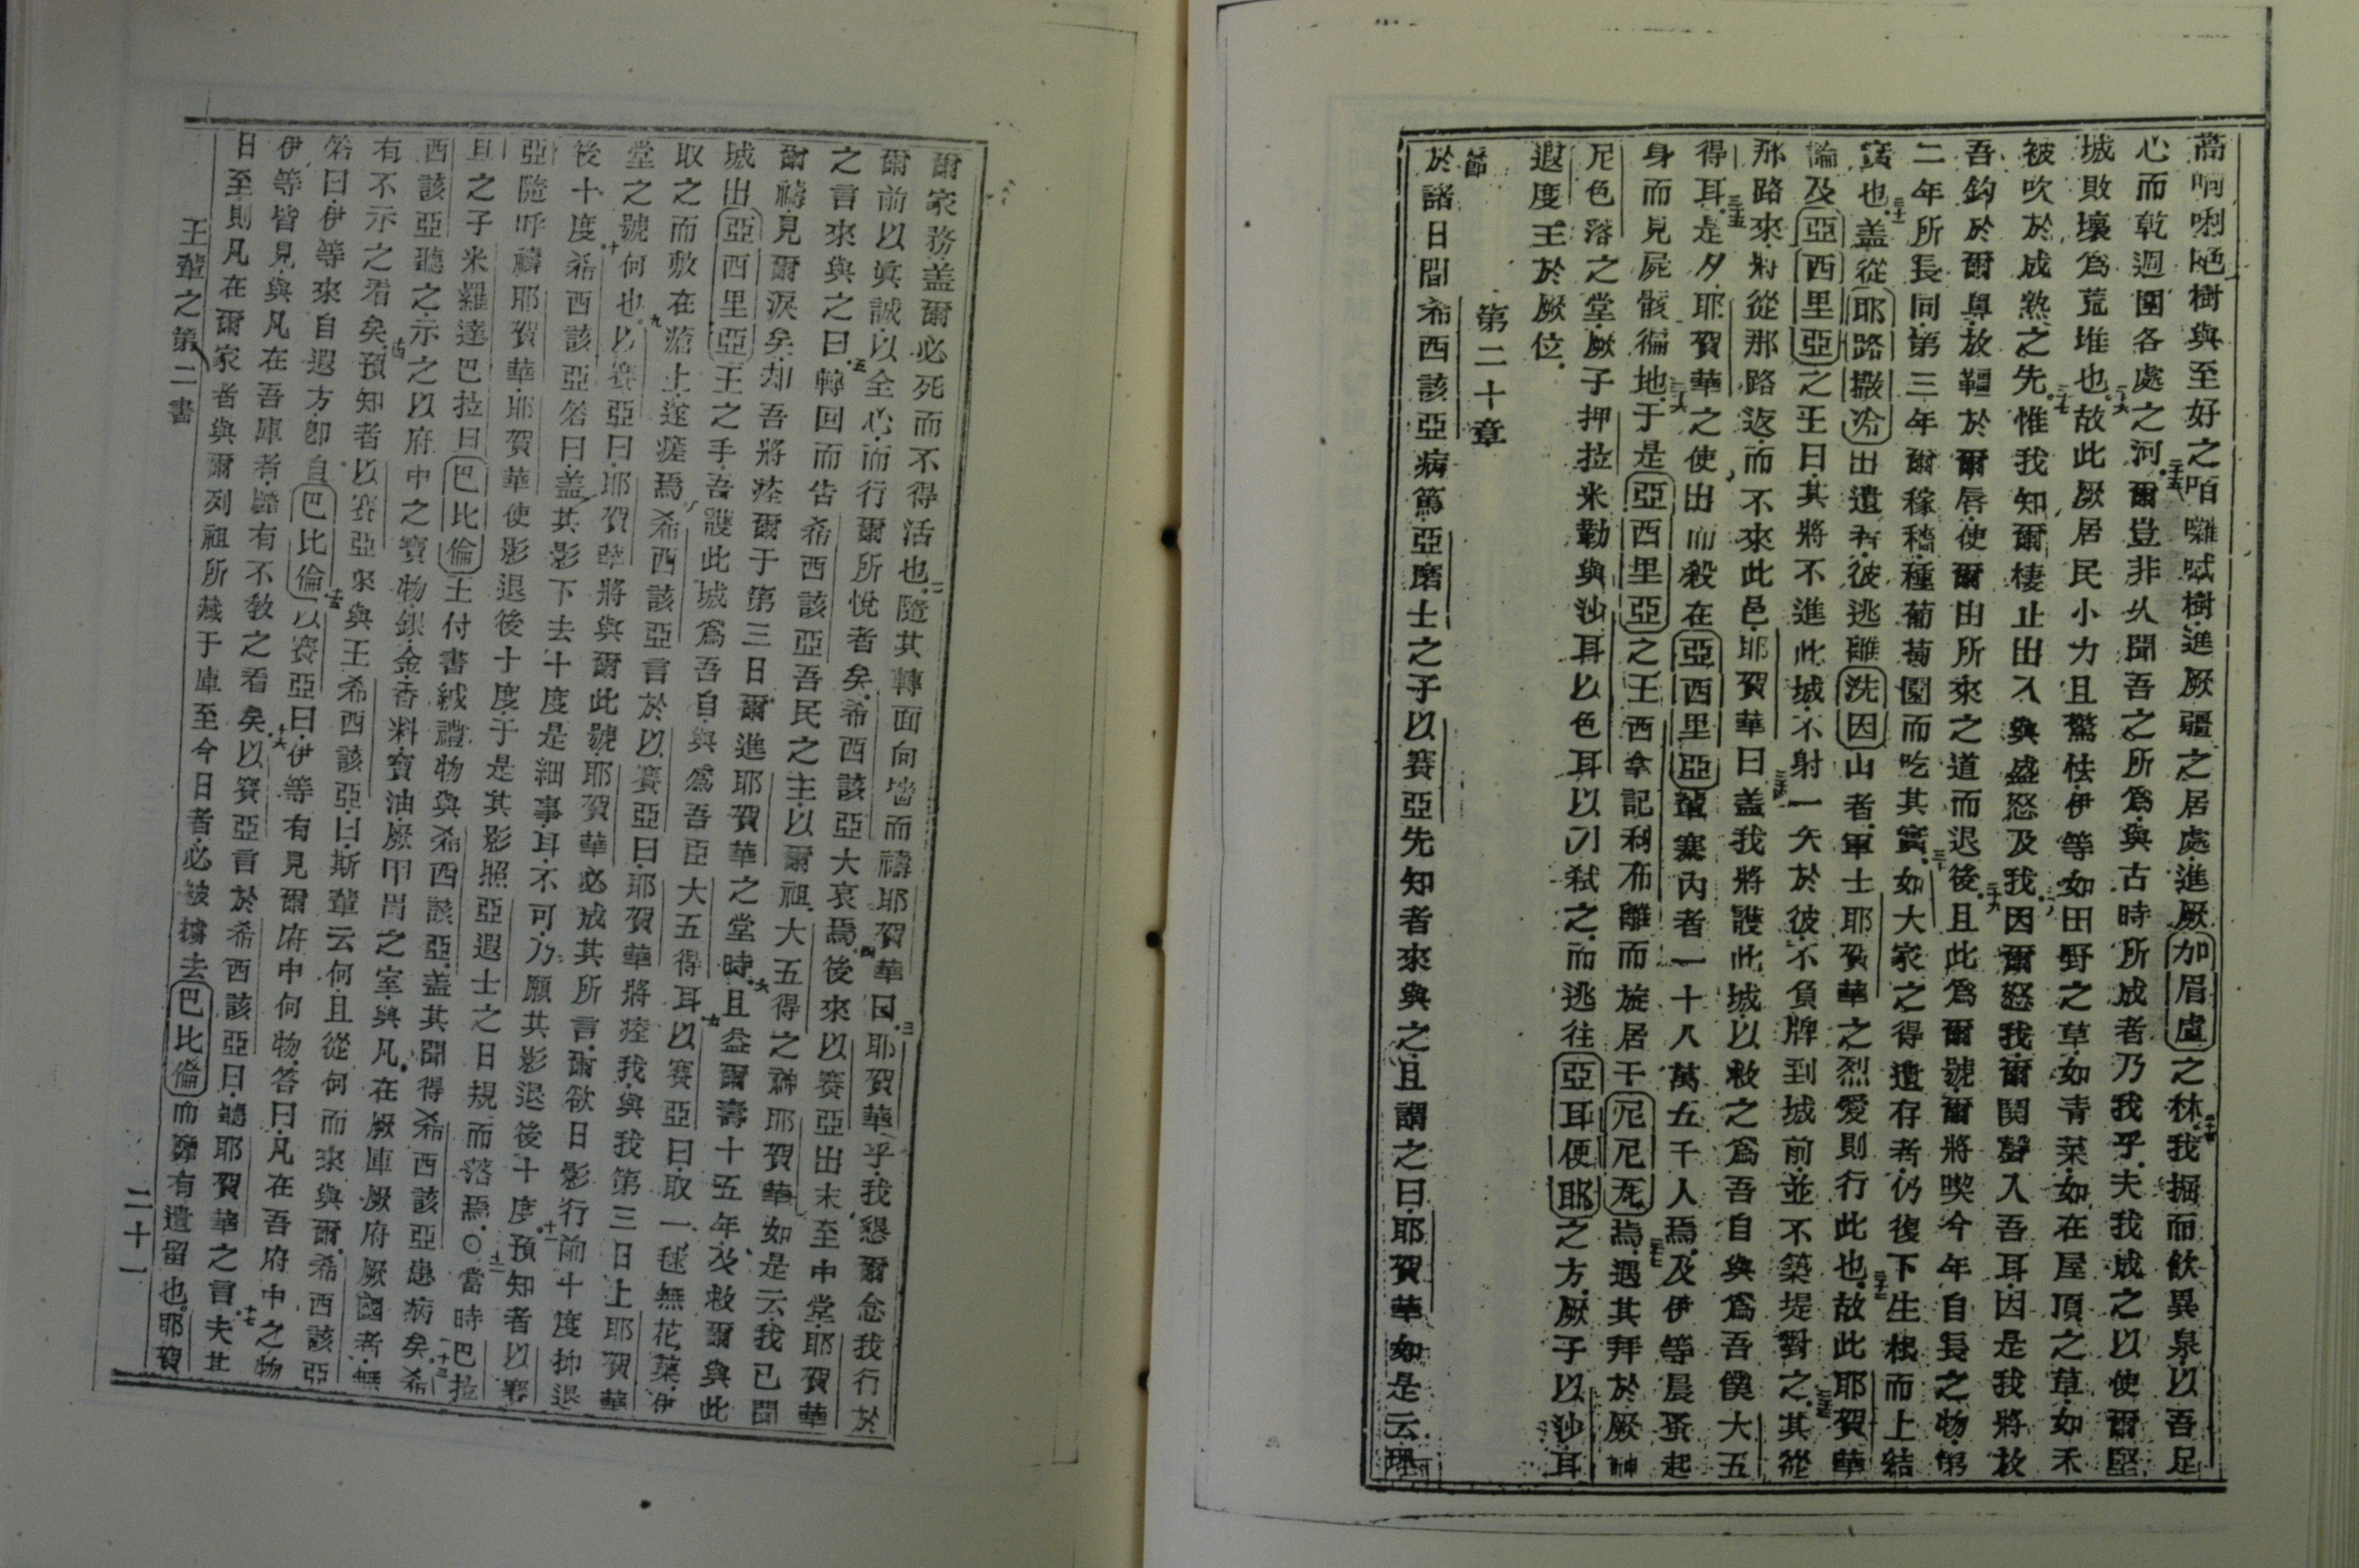 蒿啊唎哋樹與至好之咟囄㖑樹進厥疆之居處進厥加眉盧之林我掘而飲異泉以吾足
心而乾週圍各處之河爾豈非久聞吾之所爲與古時所成者乃我乎夫我成之以使爾堅
城敗壞爲荒堆也故此厥居民小力且驚怯伊等如田野之草如青菜如在屋頂之草如禾
被吹於成熟之先惟我知爾棲止出入與盛怒及我因爾怒我爾閧聲入吾耳因是我將放
吾鈎於爾鼻放韁於爾唇使爾由所來之道而退後且此爲爾號爾將喫今年自長之物第
二年所長同第三年爾稼穡種葡萄園而吃其實如大家之得遺存者仍復下生根而上結
實也盖從耶路撒冷出遺者彼逃離洗因山者軍士耶賀華之烈愛則行此也故此耶賀華
論及亞西里亞之王曰其將不進此城不射一矢於彼不負牌到城前並不築堤對之其從
那路來將從那路返而不來此邑耶賀華曰盖我將護此城以救之爲吾自與爲吾僕大五
得耳是夕耶賀華之使出而殺在亞西里亞輦寨內者一十八萬五千人焉及伊等晨蚤起
身而見屍骸徧地于是亞西里亞之王西拿記利布離而旋居于尼尼瓦焉遇其拜於厥神
尼色落之堂厥子押拉米勒與沙耳以色耳以刀弒之而逃往亞耳便耶之方厥子以沙耳
遐度王於厥位
節 第二十章
於諸日間希西該亞病篤亞磨士之子以賽亞先知者來與之且謂之曰耶賀華如是云理
爾家務盖爾必死而不得活也隨其轉面向墻而禱耶賀華曰耶賀華乎我懇爾念我行於
爾前以眞誠以全心而行爾所悅者矣希西該亞大哀焉後來以賽亞出未至中堂耶賀華
之言來與之曰轉回而告希西該亞吾民之主以爾祖大五得之神耶賀華如是云我已聞
爾禱見爾淚矣却吾將痊爾于第三日爾進耶賀華之堂時且益爾壽十五年及救爾與此
城出亞西里亞王之手吾護此城爲吾自與爲吾臣大五得耳以賽亞曰取一毬無花菓伊
取之而敷在瘡上遂瘥焉希西該亞言於以賽亞曰耶賀華將痊我與我第三日上耶賀華
堂之號何也以賽亞曰耶賀華將與爾此號耶賀華必成其所言爾欲日影行前十度抑退
後十度希西該亞答曰盖其影下去十度是細事耳不可乃願其影退後十度預知者以賽
亞隨呼禱耶賀華耶賀華使影退後十度于是其影照亞遐士之日規而落焉○當時巴拉
且之子米羅達巴拉曰巴比倫王付書絨禮物與希西該亞盖其聞得希西該亞患病矣希
西該亞聽之示之以府中之寶物銀金香料寶油厥甲冑之室與凡在厥庫厥府厥國者無
有不示之看矣預知者以賽亞來與王希西該亞曰斯輩云何且從何而來與爾希西該亞
答曰伊等來自遐方卽自巴比倫以賽亞曰伊等有見爾府中何物答曰凡在吾府中之物
伊等皆見與凡在吾庫者䟽有不敎之看矣以賽亞言於希西該亞曰聽耶賀華之言夫其
日至則凡在爾家者與爾列祖所藏于庫至今日者必被擄去巴比倫而靡有遺留也耶賀
王輩之第二書 二十一